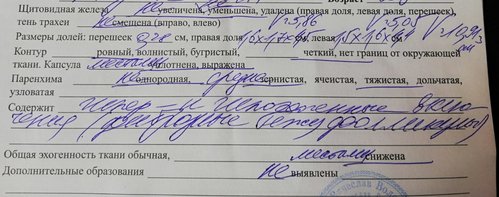 Щитовидная железа не увеличена, уменьшена, удалена (правая доля, левая доля, перешеек),
тень трахеи не смещена (вправо, влево) V=5,86 V=5,05 V=10,91
Размеры долей: перешеек 0,28 см, правая доля см, левая
Контур ровный, волнистый, бугристый, четкий, нет границ от окружающей
ткани. Капсула местами уплотнена, выражена
Паренхима неоднородная, средне зернистая, ячеистая, тяжистая, дольчатая,
узловатая
Содержит гипер- и включения (фиброзные
Общая эхогенность ткани обычная, местами снижена
Дополнительные образования не выявлены